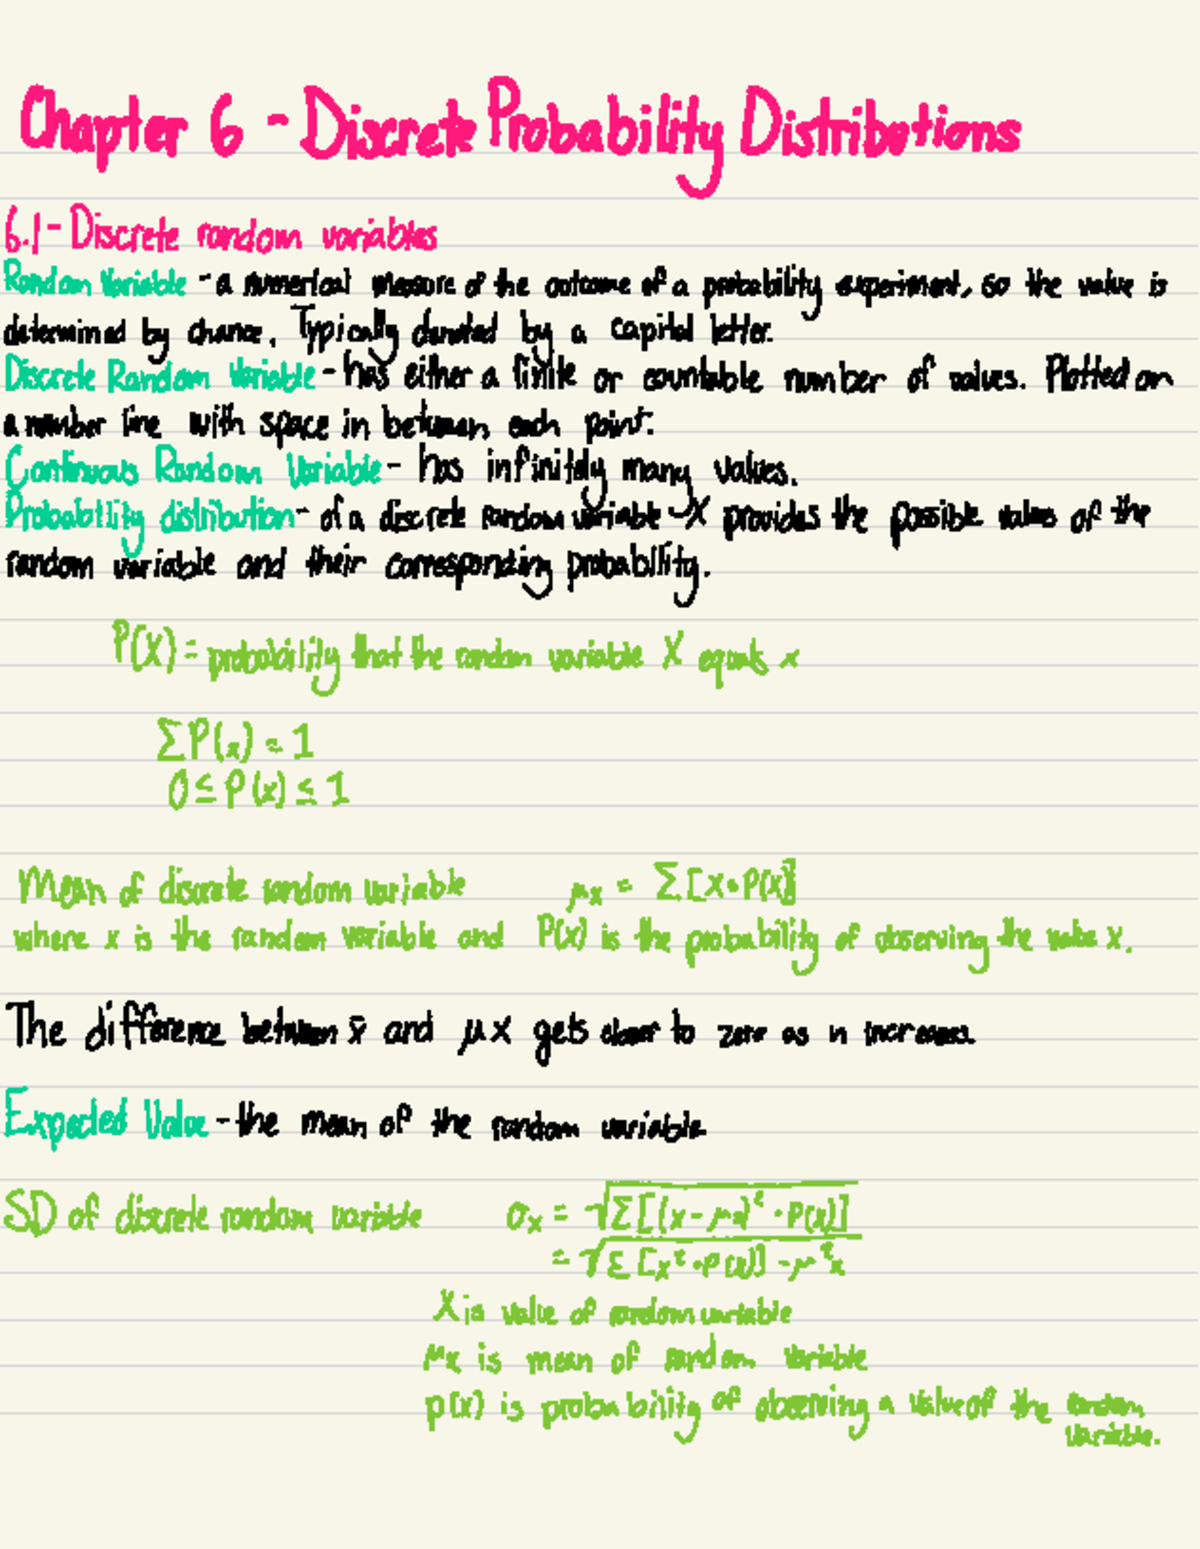 Chapter 6 - Discrete Probability Distributions
6.1 - Discrete random variables
Random Variable - a numerical measure of the outcome of a probability experiment, so the value is
determined by chance. Typically denoted by a capital letter.
Discrete Random Variable - has either a finite or countable number of values. Plotted on
a number line with space in between each point.
Continuous Random Variable - has infinitely many values.
Probability distribution - of a discrete random variable X provides the possible values of the
random variable and their corresponding probability.
P(X) = probability that the random variable X equals x
ΣP(x) = 1
0 ≤ P(x) ≤ 1
Mean of discrete random variable μx = Σ[x•P(x)]
where x is the random variable and P(x) is the probability of observing the value x.
The difference between x̄ and μx gets closer to zero as n increases.
Expected Value - the mean of the random variable
SD of discrete random variable σx = √Σ[(x-μx)²·P(x)]
= √Σ[x²·P(x)] - μ²x
X is value of random variable
μx is mean of random variable
p(x) is probability of observing a value of the random
variable.